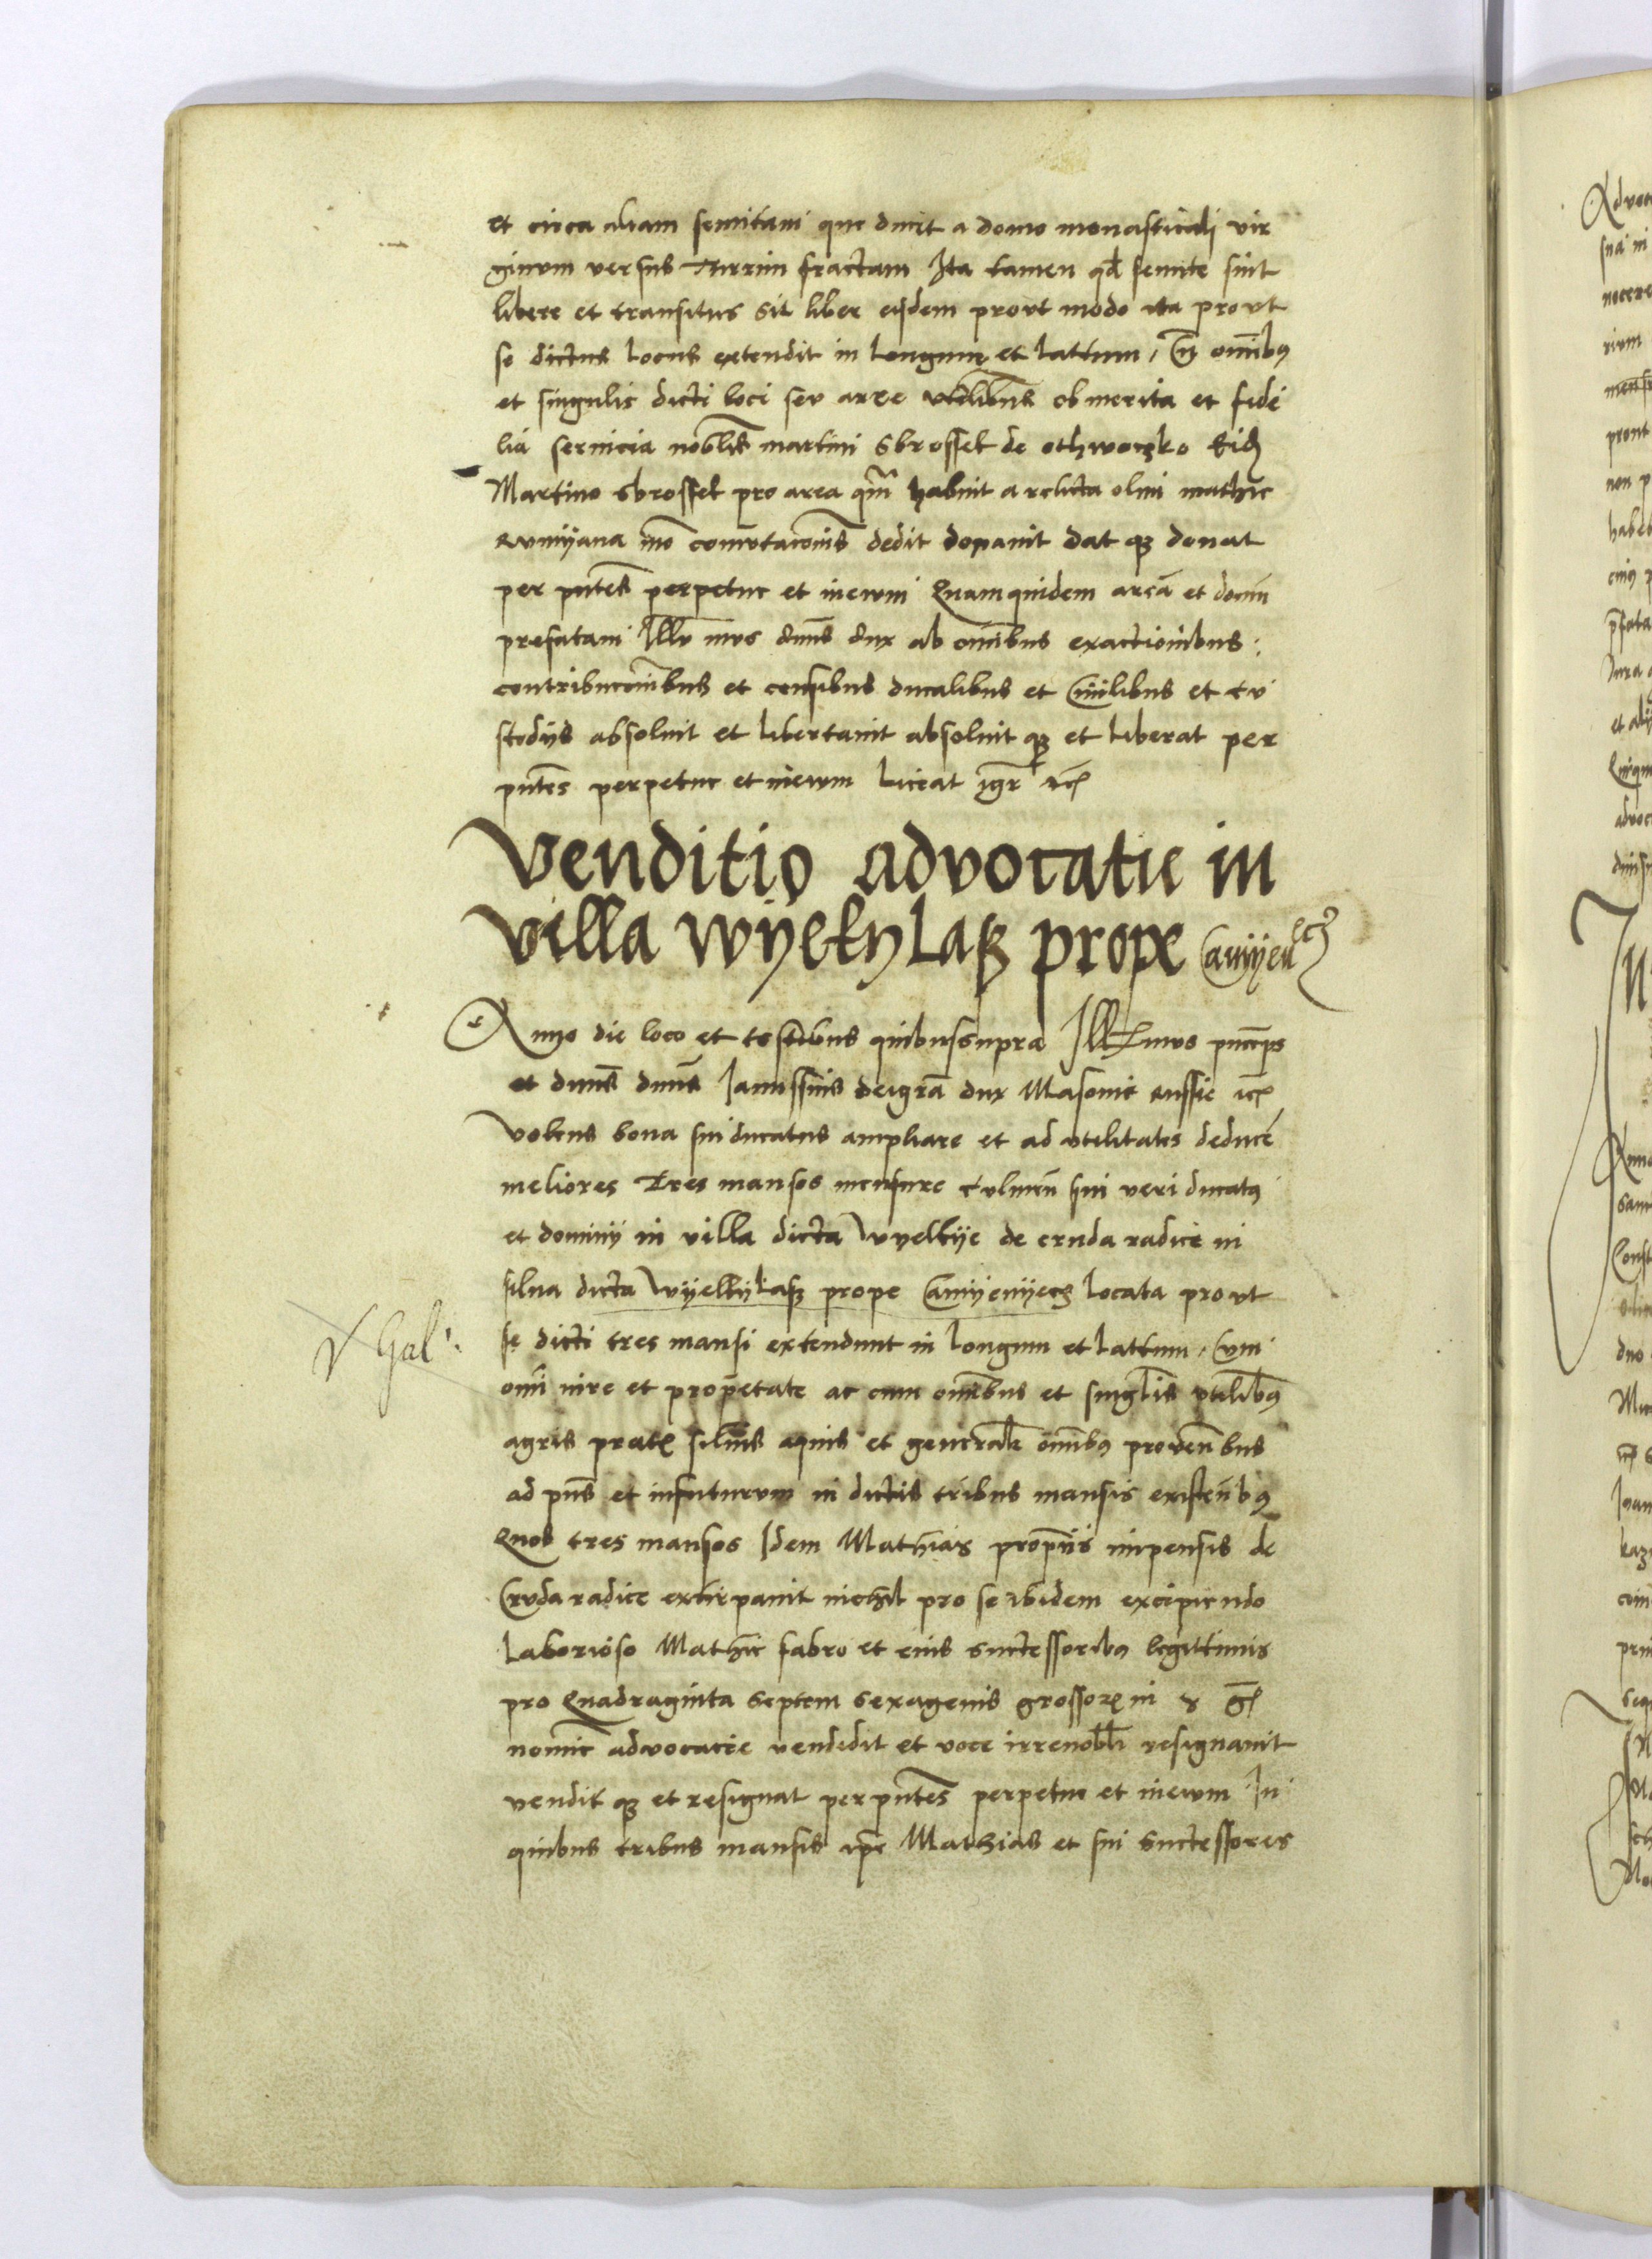 et circa aliam semitam que ducit a domo monasteriali vir
ginum versus Turrim fractam Ita tamen qd semite sint
libere et transitus sit liber eisdem provt modo ita provt
se dictus locus extendit in Longum et lattum, Cu omibus
et singulis dicti loci seu aree vtilibus ob merita et fide
lia servicia noblis martini sbrosschek de othwoczko Eidem
Martino sbrosschek pro area qm habuit a relicta olim mathie
mo comutacionis dedit donauit dat que donat
per pntes perpetue et inewm Quamquidem aream et domum
prefatam Illu mvs dnus dux ab omibus exactionibus
contribucionibus et censibus ducalibus et Ciuilibus et cu
stodys absoluit et libertauit absoluit que et liberat per
pntes perpetue et inewm Liceat igr etc
Venditio advocatie in
villa wyelkylasz prope
Anno die loco et testibus quibus supra Illmvs princeps
et dnus dnus Janussius dei gra dux Masouie russie etc
Volens bona sui ducatus ampliare et ad vtilitates deducere
meliores Tres mansos mensure culmen sui veri ducatus
et dominy in villa dicta wyelkye de cruda radice in
silua dicta wyelkylasz prope Camyenyecz locata provt
se dicti tres mansi extendunt in Longum et lattum, Cum
omi iure et proprietate ac cum omibus et singlis vtilibus
agris pratis siluis aquis et generale omibus provenbus
ad pns et infuturum in dictis tribus mansis existenbus
Quos tres mansos Idem Mathias proprijs impensis de
Cruda radice extirpauit nichil pro se ibidem excipiendo
Laborioso Mathie fabro et eius successoribus legittimis
pro Quadraginta septem sexagenis grossorum in
nomie advocacie vendidit et voce irreuobli resignauit
vendit que et resignat per pntes perpetue et inewm In
quibus tribus mansis ipe Mathias et sui successores